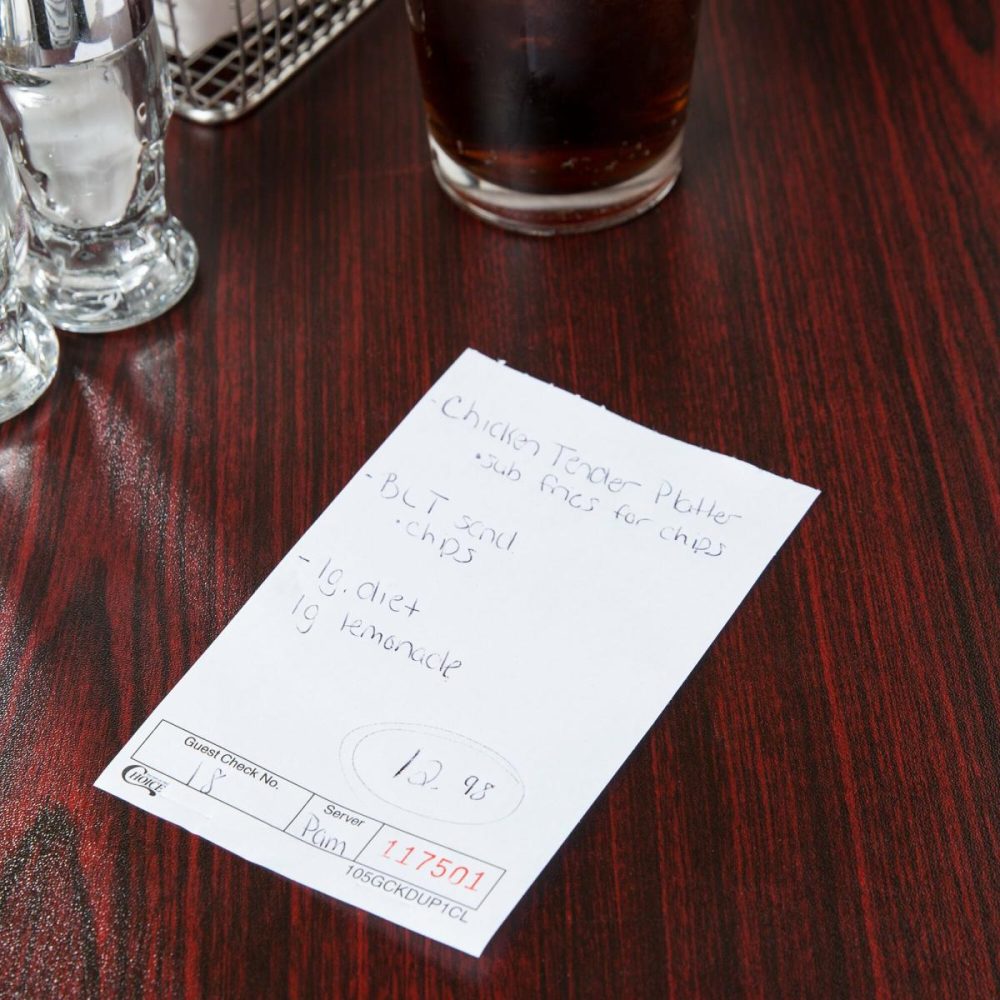 - Chicken Tender Platter
• sub fries for chips
- BLT sand
• chips
- lg. diet
lg lemonade
12.98
Guest Check No.
18
Server
Pam
117501
CHOICE
105GCKDUP1CL